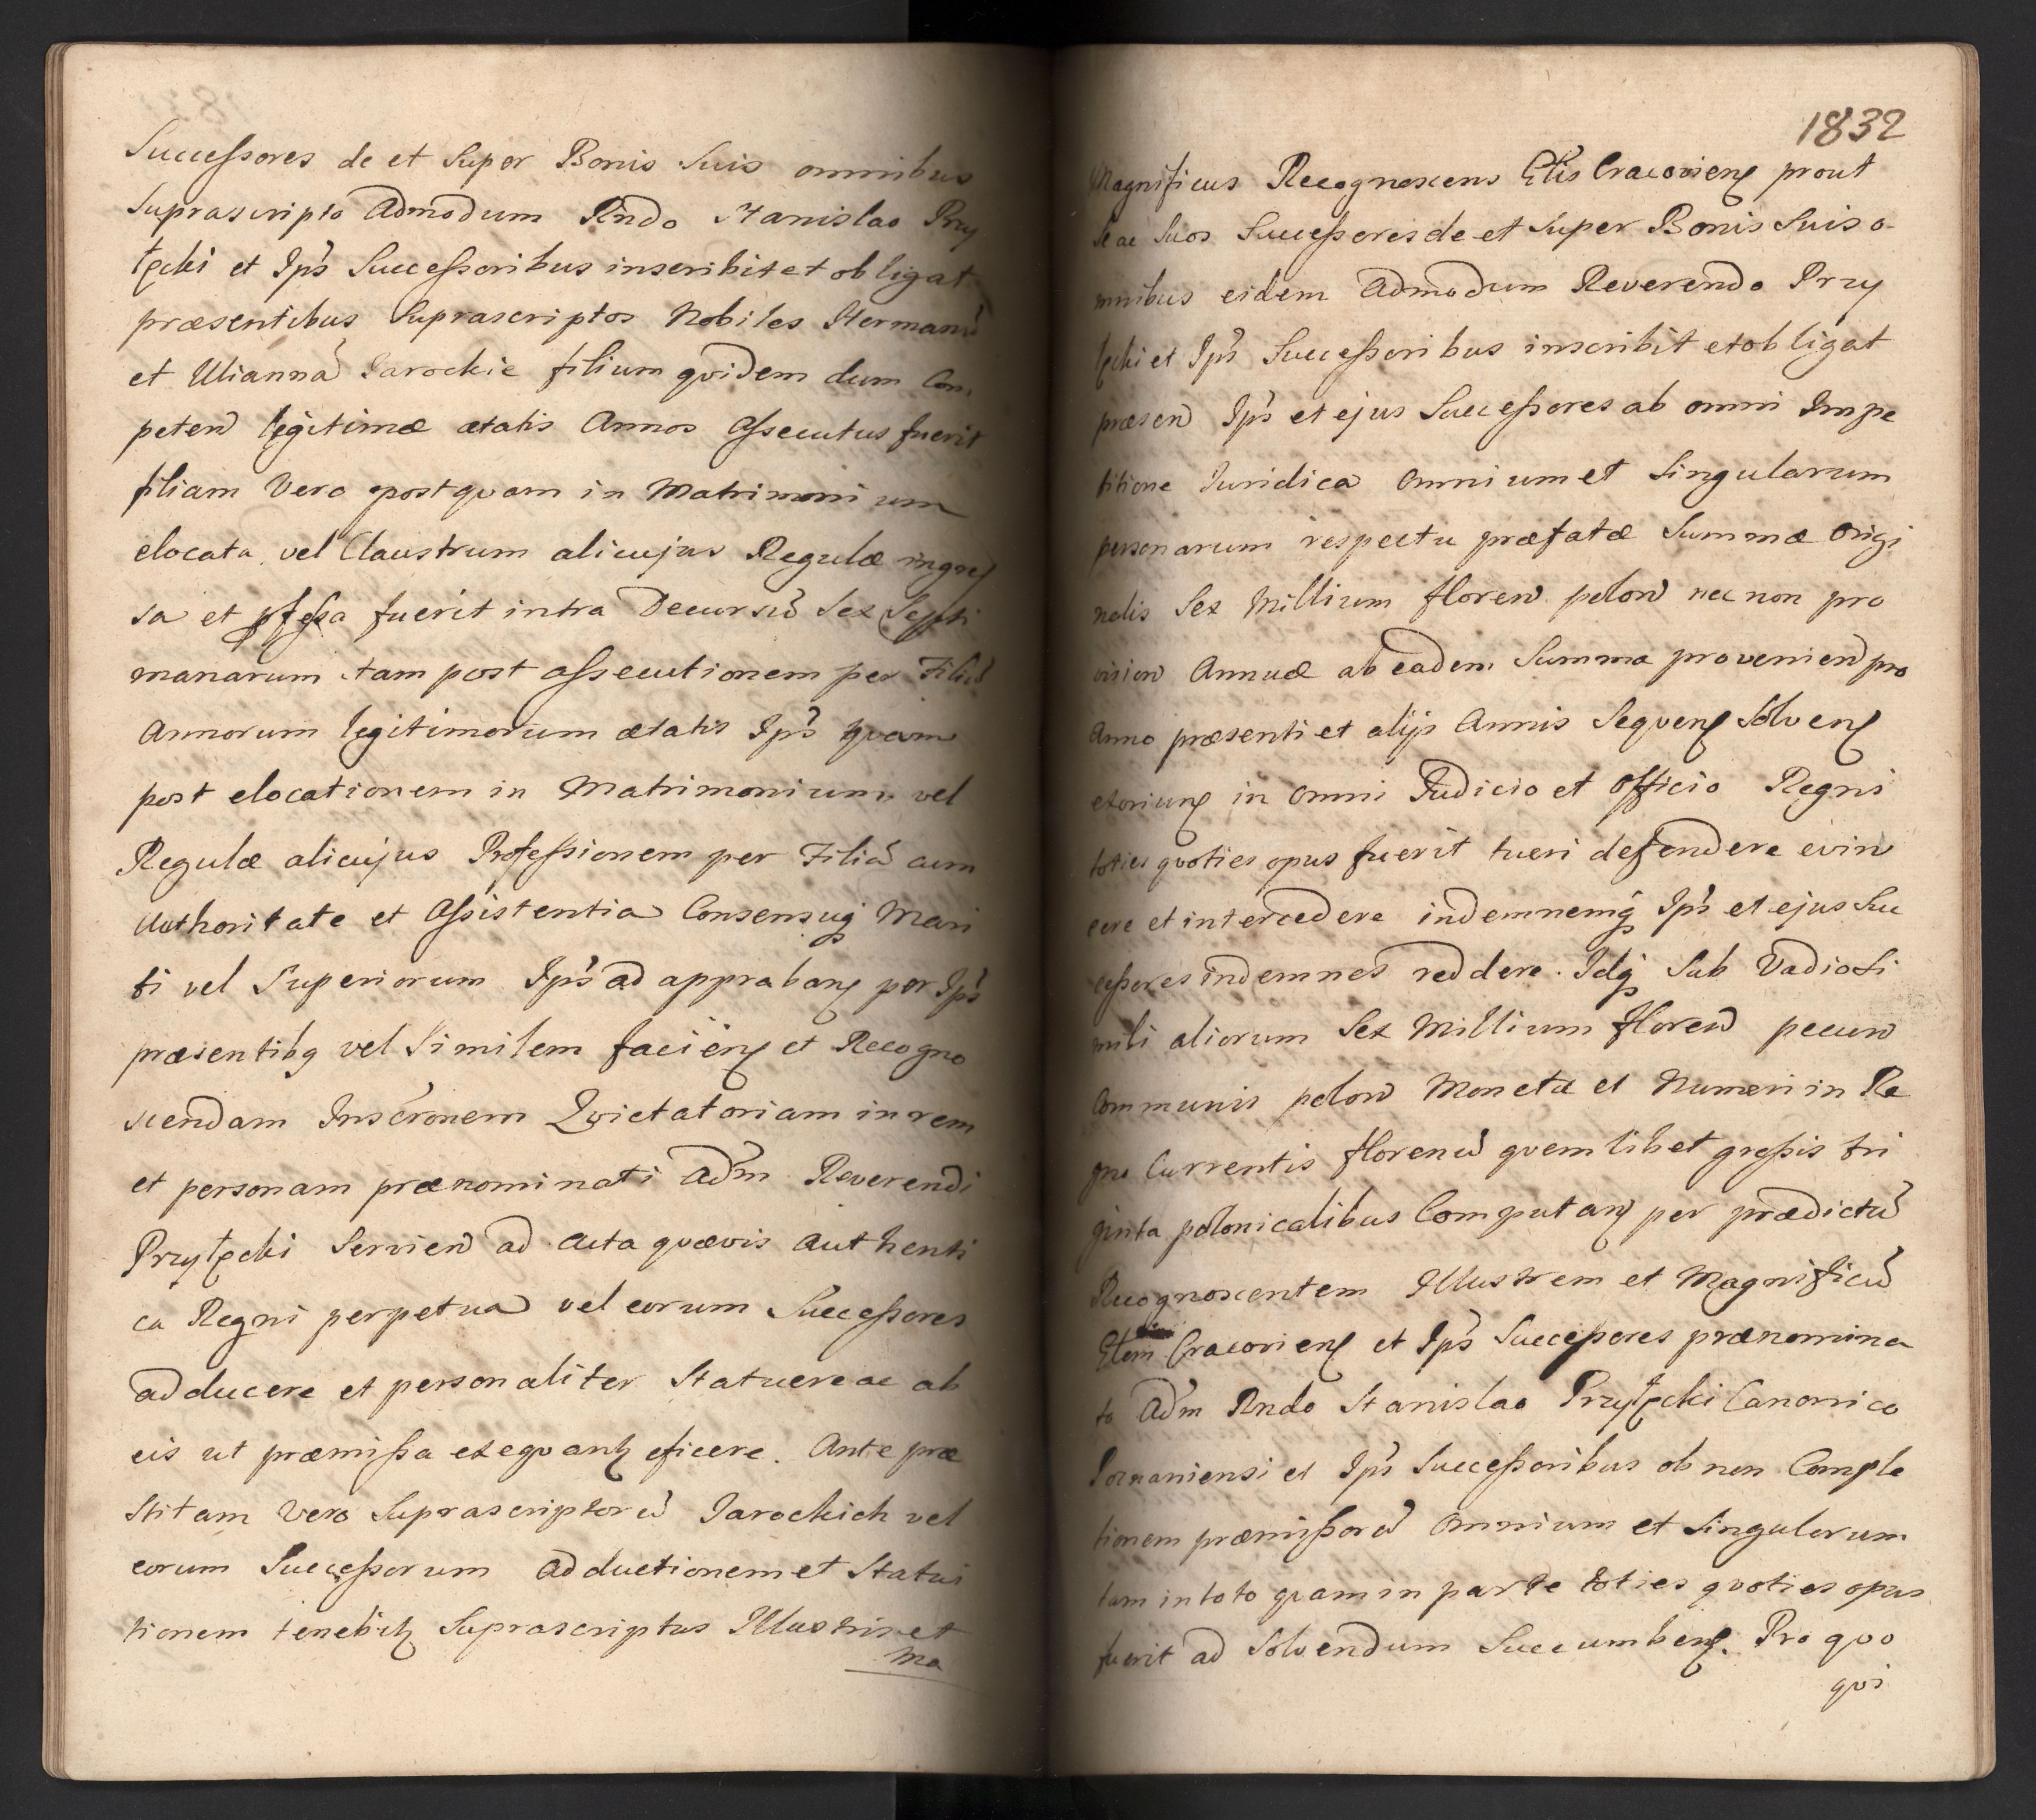 Successores de et Super Bonis Suis omnibus
Suprascripto Admodum Rndo Stanislao Przy
łęcki et Ips Successoribus inscribit et obligat
præsentibus Suprascriptos Nobiles Hermanũ
et Uliannã Jarockie filium qvidem dum Com
peten legitimæ ætatis Annos Assecutus fuerit
filiam Vero postqvam in Matrimonium
elocata vel Claustrum alicujus Regulæ ingres
sa et pfessa fuerit intra Decursũ Sex Septi
manarum tam post assecutionem per Filiũ
Annorum legitimorum ætatis Ips qvam
post elocationem in Matrimonium vel
Regulæ alicujus Professionem per Filiã cum
Authoritate et Assistentia Consensuq Mari
ti vel Superiorum Ips ad approbanę per Ips
præsentibq vel Similem facienę et Recogno
scendam Inscronem Qvietatoriam in rem
et personam prænominati Adm Reverendi
Przyłęcki Servien ad Acta qvævis Authenti
ca Regni perpetua vel eorum Successores
adducere et personaliter Statuere ac ab
eis ut præmissa exeqvantꝫ eficere. Ante præ
stitam Vero Suprascriptorũ Jarockich vel
eorum Successorum adductionem et Statui
tionem tenebitꝫ Suprascriptus Illustris et
Ma
1832
Magnificus Recognoscens Ctlis Cracovienę prout
Se ac Suos Successores de et Super Bonis Suis o-
mnibus eidem Admodum Reverendo Przy
łęcki et Ips Successoribus inscribit et obligat
præsen Ips et ejus Successores ab omni Impe
titione Juridica Omnium et Singularum
personarum respectu præfatæ Summæ Origi
nalis Sex Millium floren polon nec non pro
vision Annuæ ab eadem Summa provenien pro
Anno præsenti et alijs Annis Seqvenę Solvenę
exoriunę in Omni Judicio et Officio Regni
toties qvoties opus fuerit tueri defendere evin
cere et intercedere indemnemq Ips et ejus Suc
cessores indemnes reddere. Idq Sub Vadio Si
mili aliorum Sex Millium floren pecun
Communis polon Monetæ et Numeri in Re
gno Currentis florenũ qvemlibet grossis tri
ginta polonicalibus Computanę per prædictũ
Recognoscentem Illustrem et Magnificũ
Ctlem Cracovienę et Ips Successores prænomina
to Adm Rndo Stanislao Przyłęcki Canonico
Posnaniensi et Ips Successoribus ob non Comple
tionem præmissorũ Omnium et Singulorum
tam in toto qvam in parte toties qvoties opus
fuerit ad Solvendum Succumbenę. Pro qvo
qvi